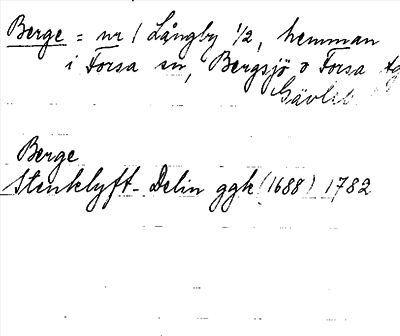 Berge = nr 1 Långby 1/2, hemman
i Forsa sn, Bergsjö o Forsa tg
Gävleb.
Berge
Stenklyft-Delin ggk (1688) 1782